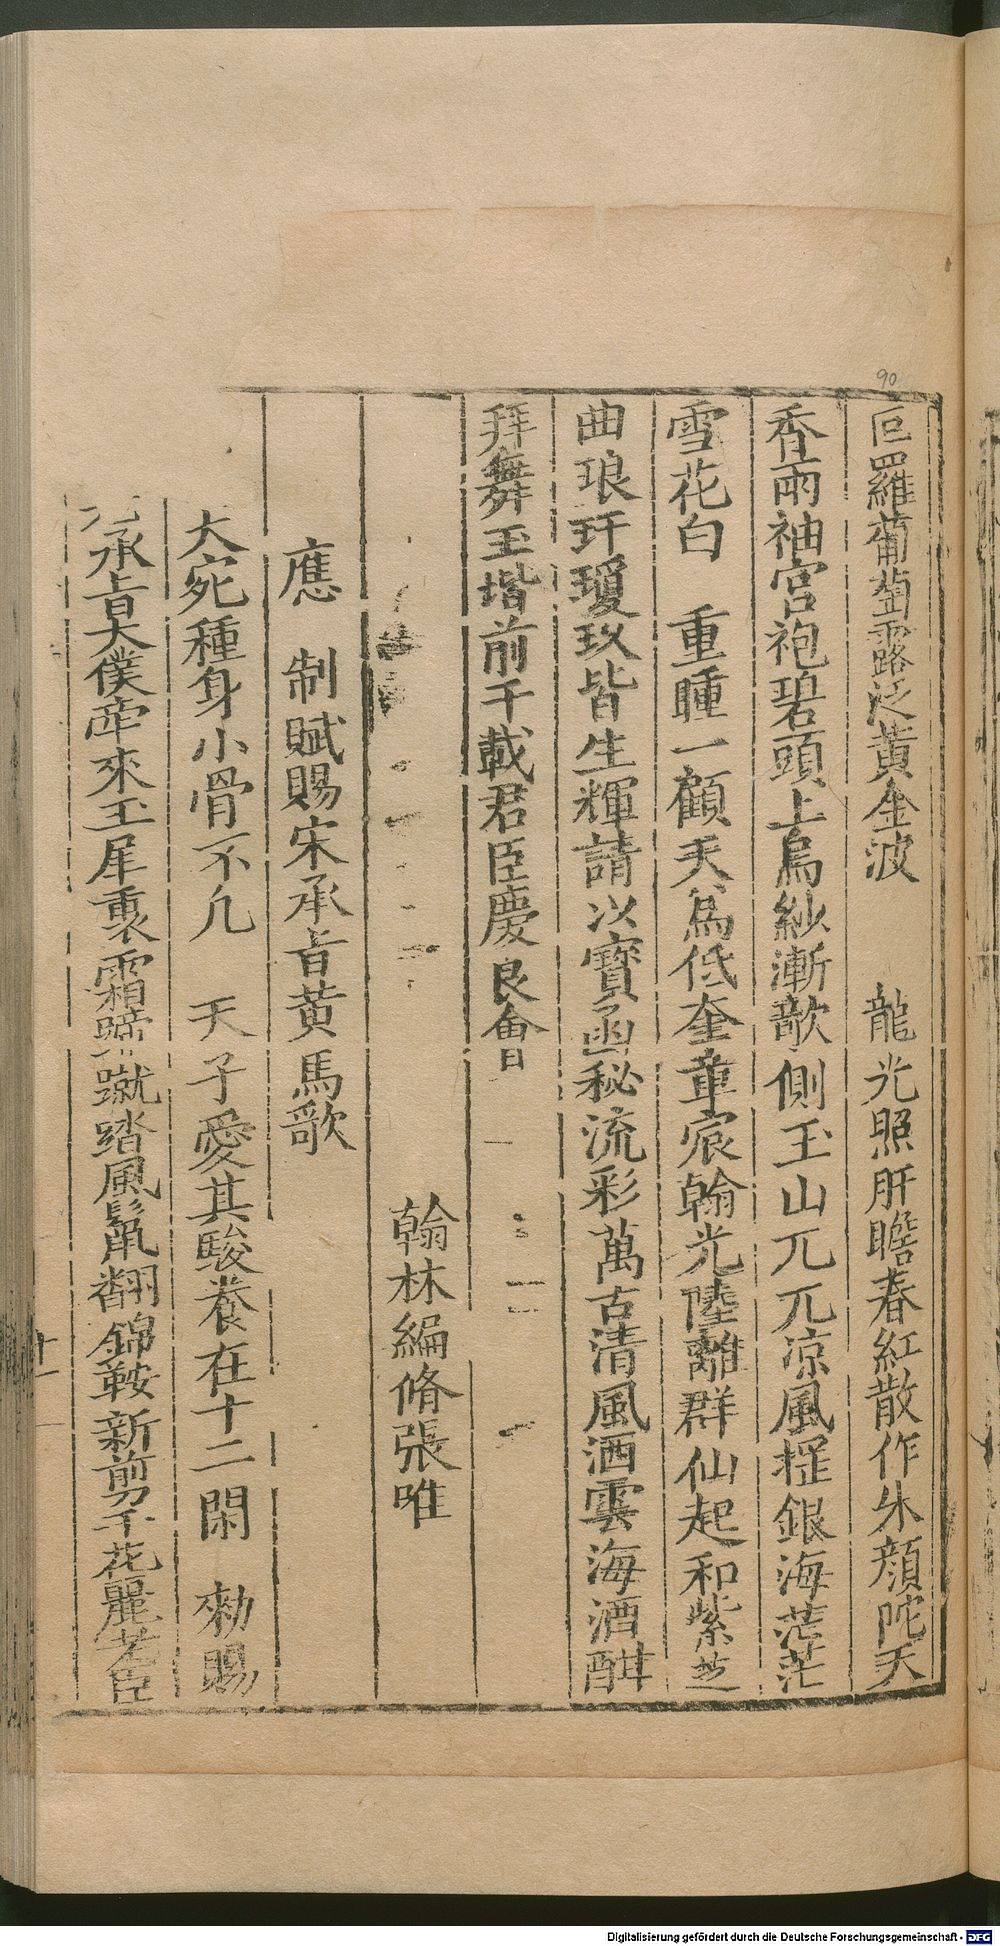 90
叵羅葡萄露泛黃金波　龍光照肝瞻春紅散作朱顏酡天
香兩袖宮袍碧頭上烏紗漸欹側玉山兀兀凉風搖銀海茫茫
雪花白　重瞳一顧天爲低奎章宸翰光陸離群仙起和紫芝
曲琅玕瓊玖皆生輝請以寶函秘流彩萬古清風洒雲海酒酣
拜舞玉堦前千載君臣慶良會
翰林編脩張唯
應　制賦賜宋承旨黃馬歌
大宛種身小骨不凡　天子愛其駿養在十二閑　勑賜
承旨大僕牽來玉犀裹霜蹄蹴踏風鬣翻錦鞍新剪千花麗老臣
十一
Digitalisierung gefördert durch die Deutsche Forschungsgemeinschaft - DFG